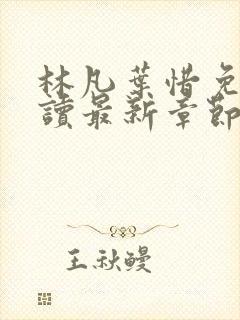 林凡葉惜免
讀最新章節
王秋鰻